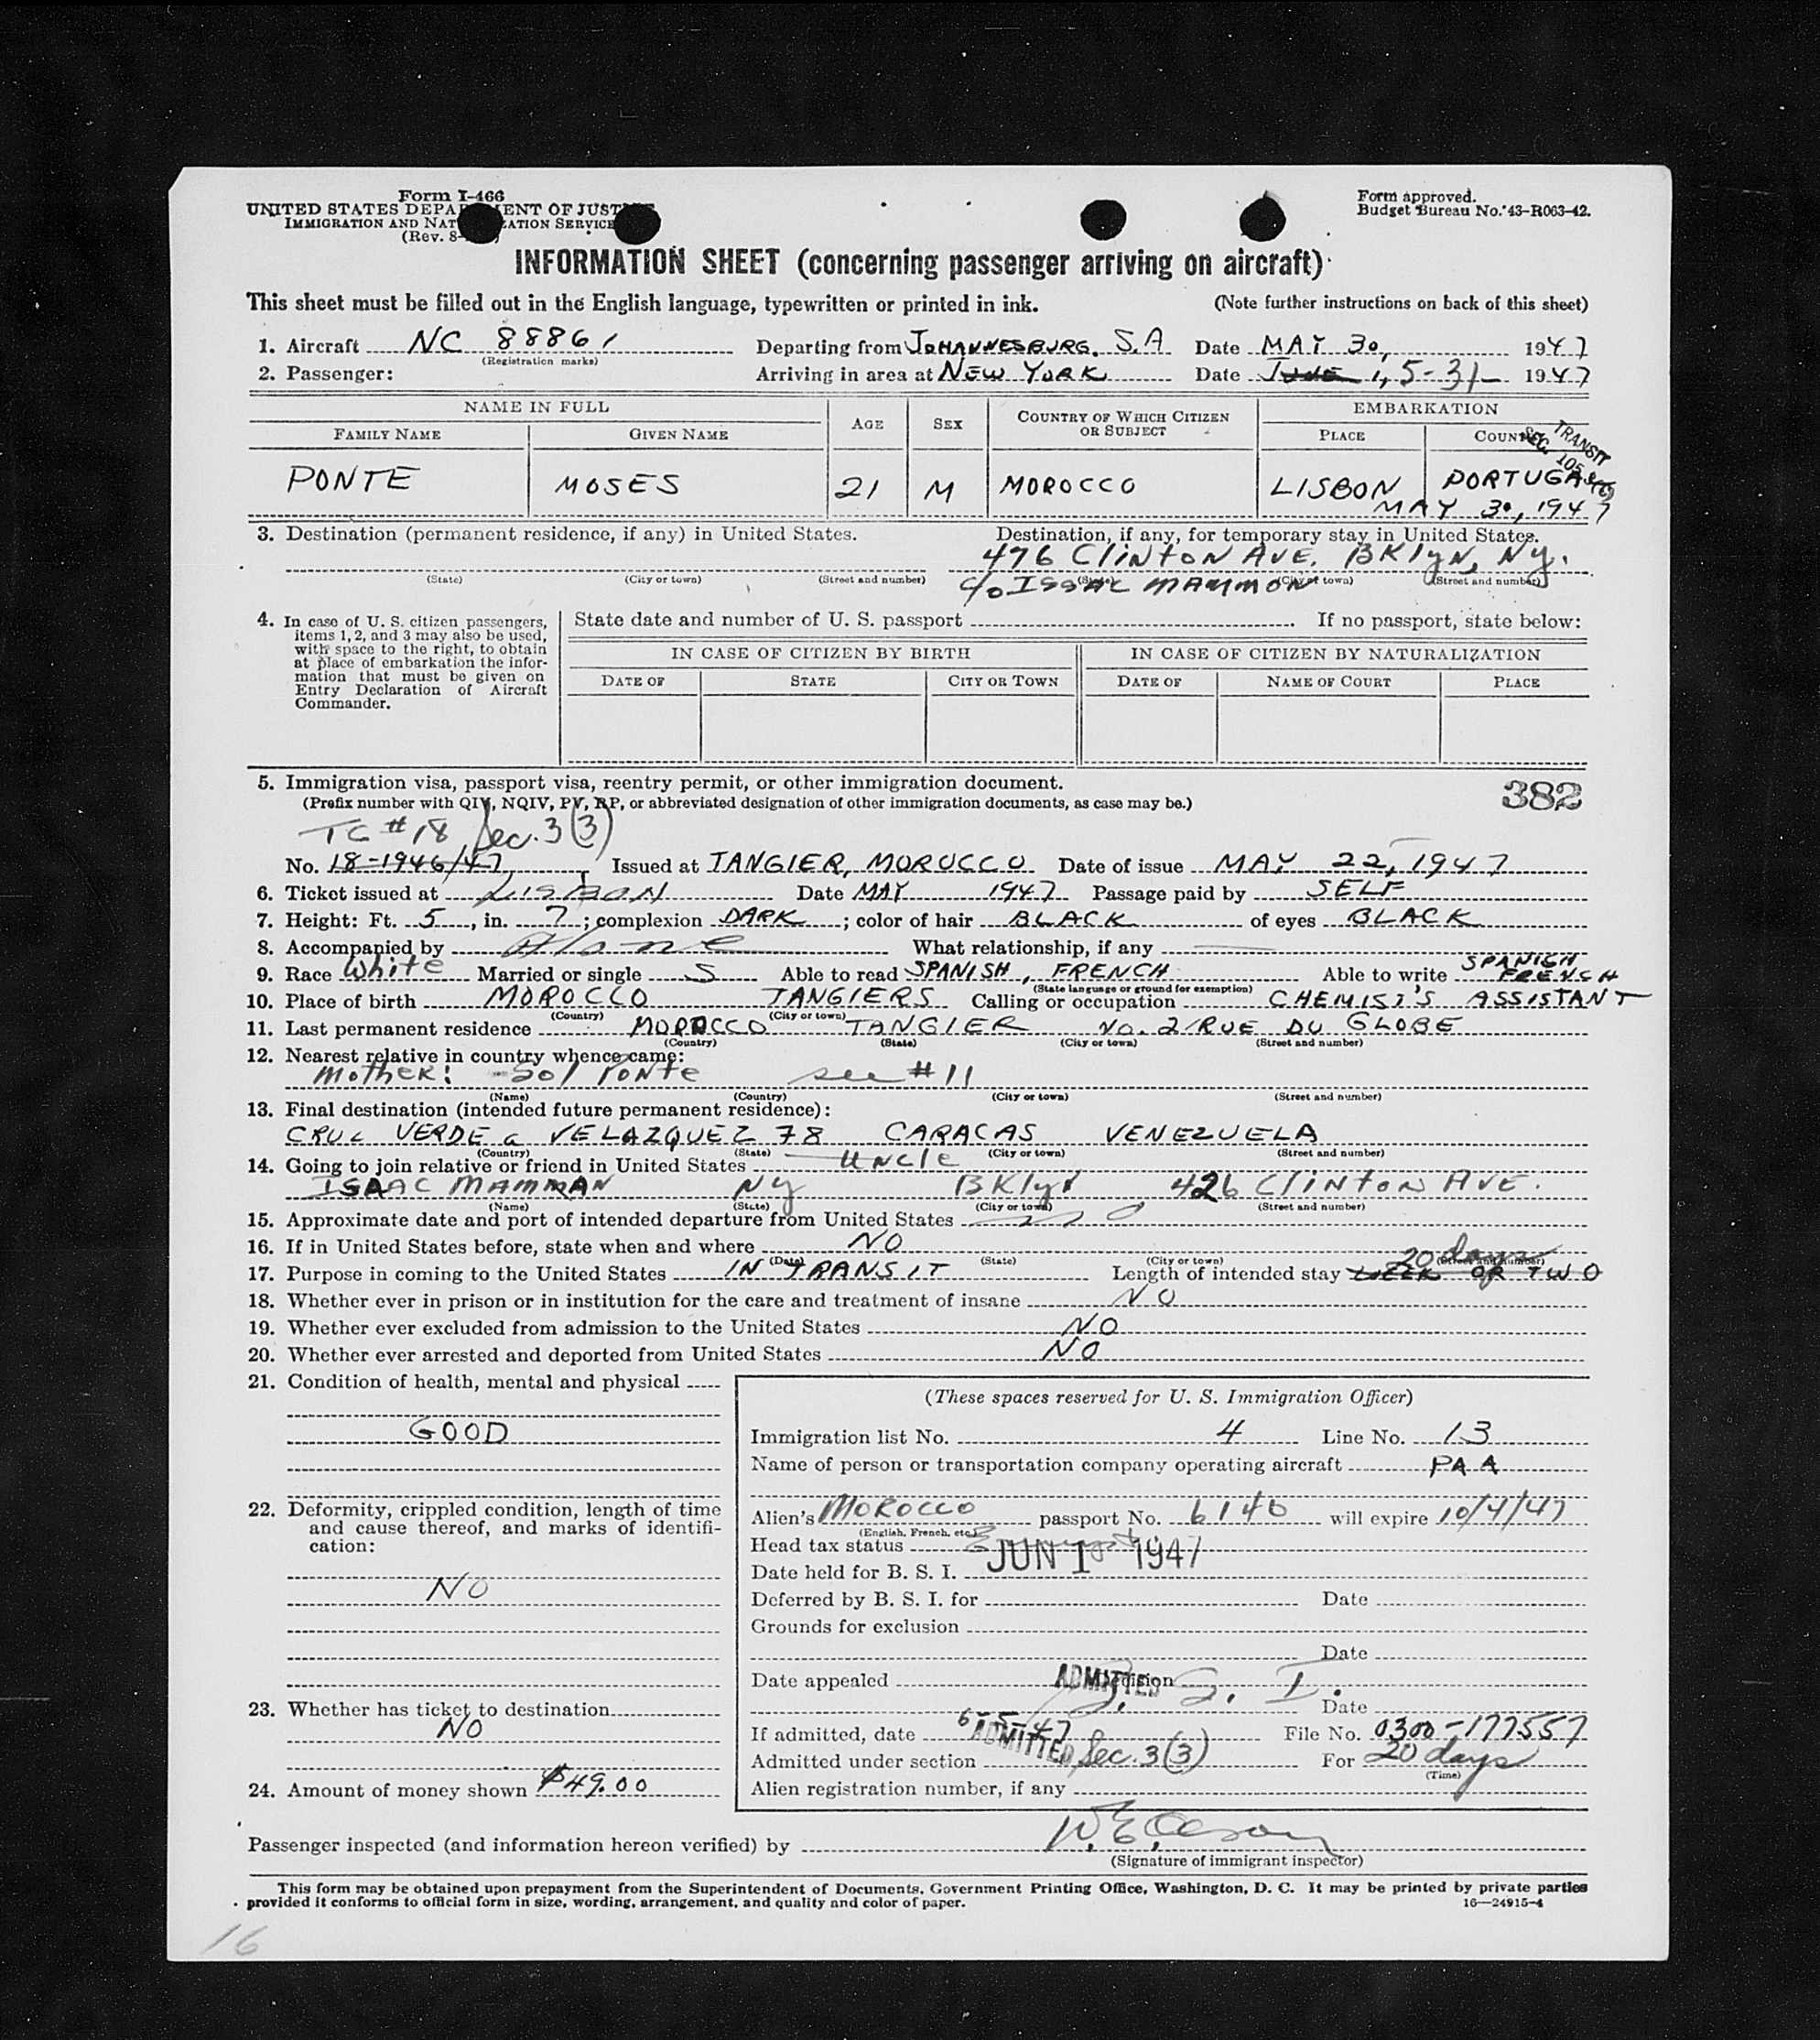 Form I-466
UNITED STATES DEPARTMENT OF JUSTICE
IMMIGRATION AND NATURALIZATION SERVICE
(Rev. 8-
Form approved.
Budget Bureau No. 43-R063-42.
INFORMATION SHEET (concerning passenger arriving on aircraft)
This sheet must be filled out in the English language, typewritten or printed in ink. (Note further instructions on back of this sheet)
1. Aircraft NC 88861 Departing from JOHANNESBURG, S.A Date MAY 30, 1947
(Registration marks)
2. Passenger: Arriving in area at NEW YORK Date JUNE 1, 5-31- 1947
NAME IN FULL AGE SEX COUNTRY OF WHICH CITIZEN OR SUBJECT EMBARKATION
FAMILY NAME GIVEN NAME PLACE COUNTRY
TRANSIT
SEC. 105
PONTE MOSES 21 M MOROCCO LISBON PORTUGAL
MAY 30, 1947
3. Destination (permanent residence, if any) in United States. Destination, if any, for temporary stay in United States.
476 Clinton AVE. BKlyN, Ny.
(State) (City or town) (Street and number) (State) (City or town) (Street and number)
c/o ISSAC MAMMON
4. In case of U. S. citizen passengers, items 1, 2, and 3 may also be used, with space to the right, to obtain at place of embarkation the information that must be given on Entry Declaration of Aircraft Commander.
State date and number of U. S. passport . If no passport, state below:
IN CASE OF CITIZEN BY BIRTH IN CASE OF CITIZEN BY NATURALIZATION
DATE OF STATE CITY OR TOWN DATE OF NAME OF COURT PLACE
5. Immigration visa, passport visa, reentry permit, or other immigration document. 382
(Prefix number with QIV, NQIV, PV, RP, or abbreviated designation of other immigration documents, as case may be.)
TC #18 Sec. 3(3)
No. 18-1946/47, Issued at TANGIER, MOROCCO Date of issue MAY 22, 1947
6. Ticket issued at LISBON Date MAY 1947 Passage paid by SELF
7. Height: Ft. 5, in. 7; complexion DARK; color of hair BLACK of eyes BLACK
8. Accompanied by Alone What relationship, if any
9. Race White Married or single S Able to read SPANISH, FRENCH Able to write SPANISH FRENCH
(State language or ground for exemption)
10. Place of birth MOROCCO TANGIERS Calling or occupation CHEMIST'S ASSISTANT
(Country) (City or town)
11. Last permanent residence MOROCCO TANGIER No. 2 RUE DU GLOBE
(Country) (State) (City or town) (Street and number)
12. Nearest relative in country whence came:
MotHER: -Sol PoNte see #11
(Name) (Country) (City or town) (Street and number)
13. Final destination (intended future permanent residence):
CRUC VERDE a VELAZQUEZ 78 CARACAS VENEZUELA
(Country) (State) (City or town) (Street and number)
14. Going to join relative or friend in United States UNcle
ISAAC MAMMAN Ny BKlyN 426 Clinton AVE.
(Name) (State) (City or town) (Street and number)
15. Approximate date and port of intended departure from United States
16. If in United States before, state when and where NO
(Date) (State) (City or town) (Street and number)
20 days
17. Purpose in coming to the United States IN TRANSIT Length of intended stay WEEK OR TWO
18. Whether ever in prison or in institution for the care and treatment of insane NO
19. Whether ever excluded from admission to the United States NO
20. Whether ever arrested and deported from United States NO
21. Condition of health, mental and physical
GOOD
22. Deformity, crippled condition, length of time and cause thereof, and marks of identification:
NO
23. Whether has ticket to destination
NO
24. Amount of money shown $49.00
(These spaces reserved for U. S. Immigration Officer)
Immigration list No. 4 Line No. 13
Name of person or transportation company operating aircraft PAA
Alien's MOROCCO passport No. 6146 will expire 10/4/47
(English, French, etc.)
Head tax status
JUN 1 1947
Date held for B. S. I.
Deferred by B. S. I. for Date
Grounds for exclusion
Date
Date appealed Decision
ADMITTED B. S. I.
Date
If admitted, date 6-5-47 File No. 0300-177557
Admitted under section ADMITTED Sec. 3(3) For 20 days
(Time)
Alien registration number, if any
Passenger inspected (and information hereon verified) by
(Signature of immigrant inspector)
This form may be obtained upon prepayment from the Superintendent of Documents, Government Printing Office, Washington, D. C. It may be printed by private parties
provided it conforms to official form in size, wording, arrangement, and quality and color of paper. 16—24915-4
16